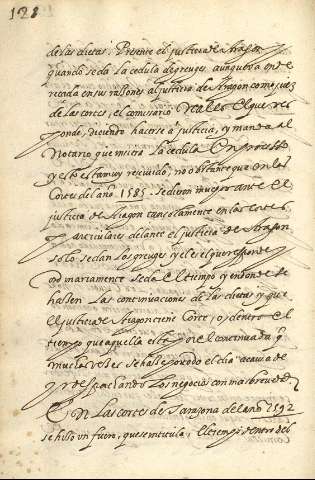 128
de las dietas. Presente el justicia de Aragon
quando se da la cedula de greuges. aunque va ende
reçada en sus rassones al justicia de Aragon como juez
de las cortes, el comisario
ponde, di cuento haserse a justicia, y manda al
Notario que incira la cedula en processo
y esto esta muy reciuido, no obstante que en las
Cortes del año 1585. se dieron muchos ante el
justicia de Aragon tan solamente en las cortes
particulares delante el justicia de Aragon
solo se dan los greuges y el es el que responde
ordinariamente se da el tiempo y en donde se
hassen las continuaciones de las dietas y que
el justicia de Aragon tiene Corte, o, dentro el
tiempo que aquella esta por el continuada q̃
muchas veses se halla porrdo el dia
y r despachando los negocios con mas breuedad
En las cortes de Tarazona del año 1592
se hiso un fuero, que se intitula: El tiempo dentro del